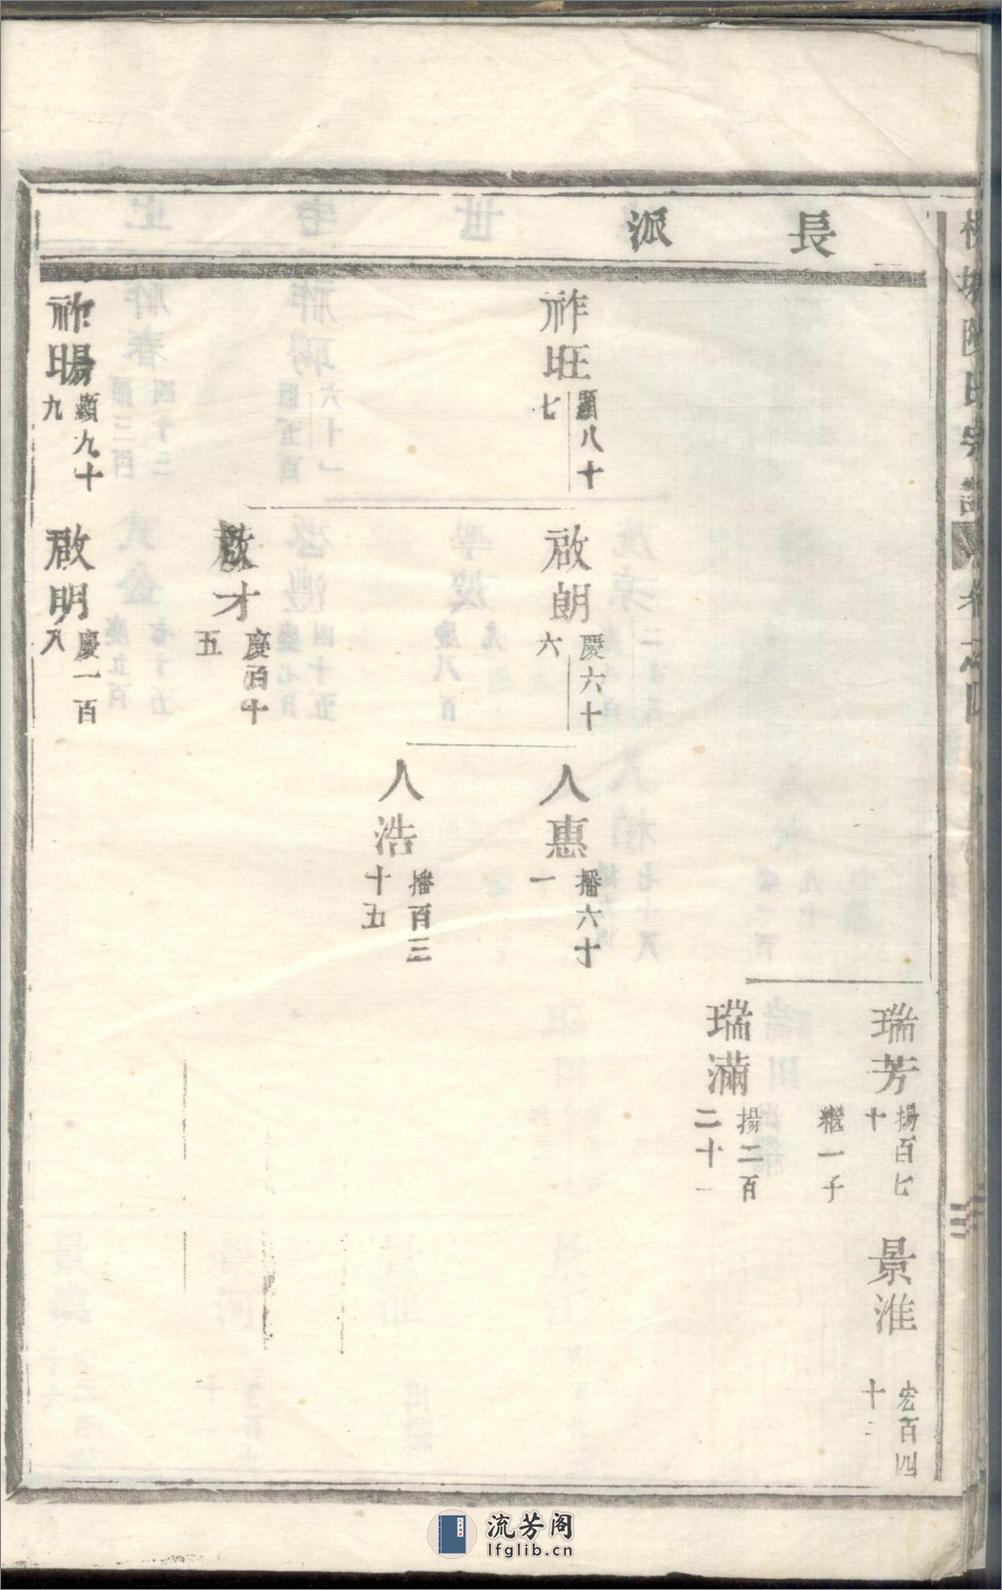 長派
祚旺
顯八十
七
祚暘
顯九十
九
啟朗
慶六十
六
啟才
慶百十
五
啟明
慶一百
八
人惠
播六十
一
人浩
播百三
十五
瑞芳
揚百七
十
繼一子
瑞滿
揚二百
二十一
景淮
宏百四
十二
三
流芳阁
lfglib.cn